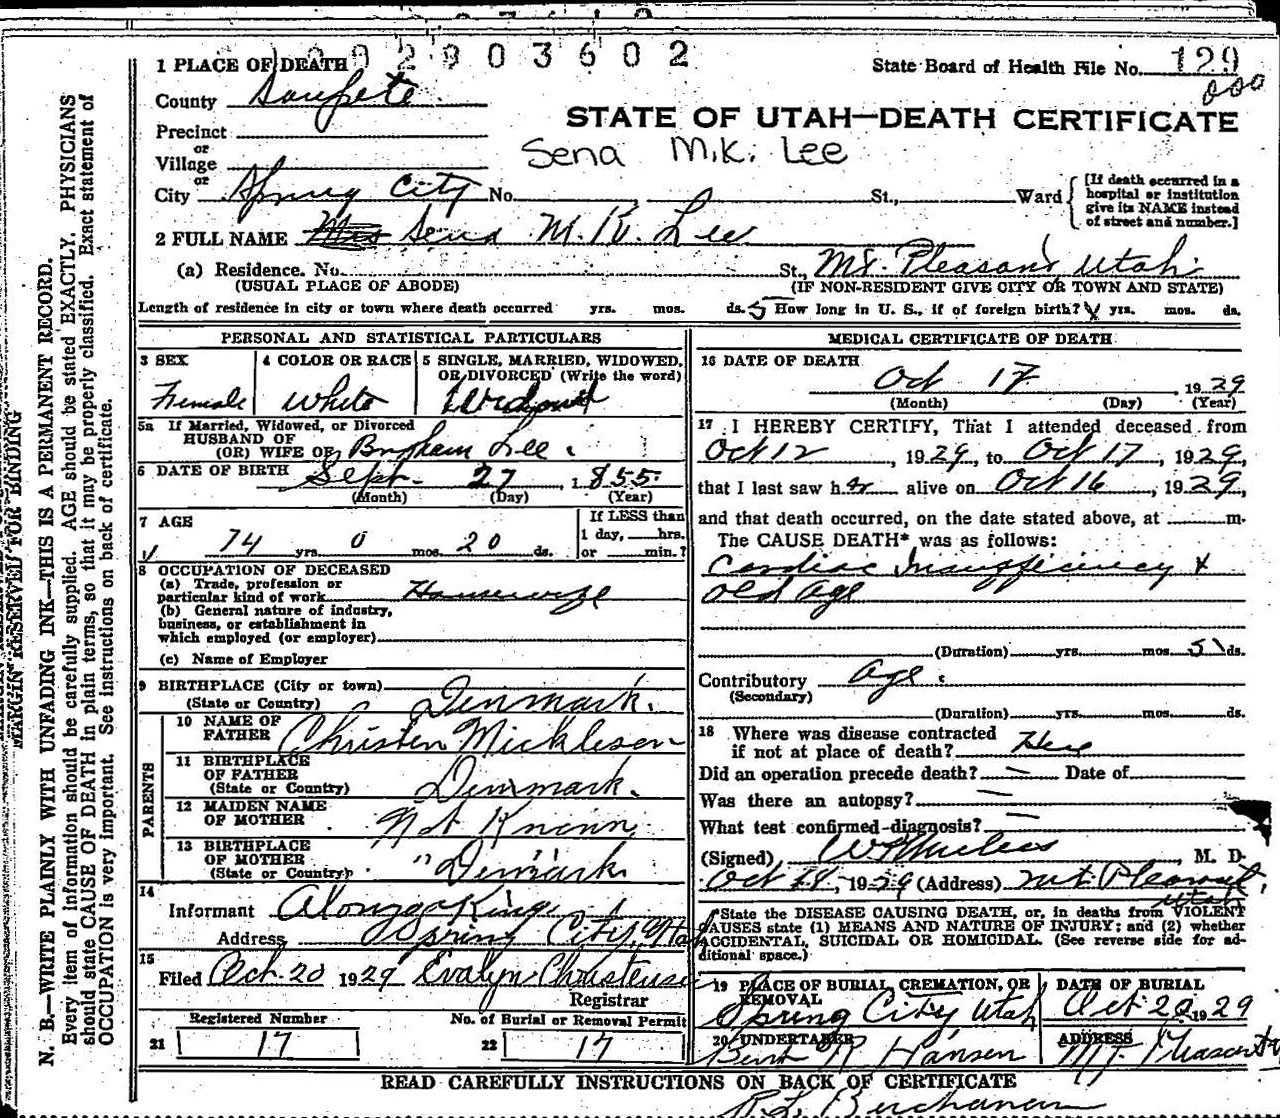 1 PLACE OF DEATH 1 0 0 2 9 0 3 6 0 2
State Board of Health File No. 129
000
County Sanpete
STATE OF UTAH—DEATH CERTIFICATE
Precinct
or
Village
Sena M.K. Lee
or
City Spring City No. St., Ward
[If death occurred in a
hospital or institution
give its NAME instead
of street and number.]
2 FULL NAME Mrs Sena M. K. Lee
(a) Residence. No. St., Mt. Pleasant, Utah.
(USUAL PLACE OF ABODE) (IF NON-RESIDENT GIVE CITY OR TOWN AND STATE)
Length of residence in city or town where death occurred yrs. mos. ds. 5 How long in U. S., if of foreign birth? yrs. mos. ds.
PERSONAL AND STATISTICAL PARTICULARS
3 SEX
Female
4 COLOR OR RACE
White
5 SINGLE, MARRIED, WIDOWED,
OR DIVORCED (Write the word)
Widowed
5a If Married, Widowed, or Divorced
HUSBAND OF
(OR) WIFE OF Brigham Lee.
6 DATE OF BIRTH Sept. 27, 1855
(Month) (Day) (Year)
7 AGE
74 yrs. 0 mos. 20 ds.
If LESS than
1 day, hrs.
or min.?
8 OCCUPATION OF DECEASED
(a) Trade, profession or
particular kind of work Housewife
(b) General nature of industry,
business, or establishment in
which employed (or employer)
(c) Name of Employer
9 BIRTHPLACE (City or town)
(State or Country) Denmark.
PARENTS
10 NAME OF
FATHER Christen Micklesen
11 BIRTHPLACE
OF FATHER
(State or Country) Denmark.
12 MAIDEN NAME
OF MOTHER Not Known
13 BIRTHPLACE
OF MOTHER
(State or Country) " Demark "
14
Informant Alonzo King
Address Spring City, Utah
15
Filed Oct. 20 1929 Evalyn Christensen
Registrar
Registered Number
21 17
No. of Burial or Removal Permit
22 17
MEDICAL CERTIFICATE OF DEATH
16 DATE OF DEATH
Oct 17 1929
(Month) (Day) (Year)
17 I HEREBY CERTIFY, That I attended deceased from
Oct 12, 1929, to Oct 17, 1929,
that I last saw her alive on Oct 16, 1929,
and that death occurred, on the date stated above, at m.
The CAUSE DEATH* was as follows:
Cardiac Insufficiency +
old age
(Duration) yrs. mos. 5 ds.
Contributory Age.
(Secondary)
(Duration) yrs. mos. ds.
18 Where was disease contracted
if not at place of death? Here
Did an operation precede death? — Date of
Was there an autopsy? —
What test confirmed diagnosis? —
(Signed) , M. D.
Oct 18, 1929 (Address) Mt. Pleasant,
Utah
*State the DISEASE CAUSING DEATH, or, in deaths from VIOLENT
CAUSES state (1) MEANS AND NATURE OF INJURY; and (2) whether
ACCIDENTAL, SUICIDAL OR HOMICIDAL. (See reverse side for ad-
ditional space.)
19 PLACE OF BURIAL, CREMATION, OR
REMOVAL
Spring City Utah
DATE OF BURIAL
Oct 20, 1929
20 UNDERTAKER
Bent R Hansen
ADDRESS
Mt. Pleasant
READ CAREFULLY INSTRUCTIONS ON BACK OF CERTIFICATE
R.L. Buchanan
MARGIN RESERVED FOR BINDING
N. B.—WRITE PLAINLY WITH UNFADING INK—THIS IS A PERMANENT RECORD.
Every item of information should be carefully supplied. AGE should be stated EXACTLY. PHYSICIANS
should state CAUSE OF DEATH in plain terms, so that it may be properly classified. Exact statement of
OCCUPATION is very important. See instructions on back of certificate.